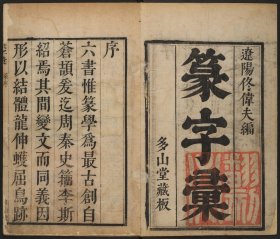 遼陽佟偉夫編
篆字彙
多山堂藏板
序
六書惟篆學為最古創自
蒼頡爰迄周秦史籀李斯
紹焉其間變文而同義因
形以結體龍伸蠖屈鳥跡